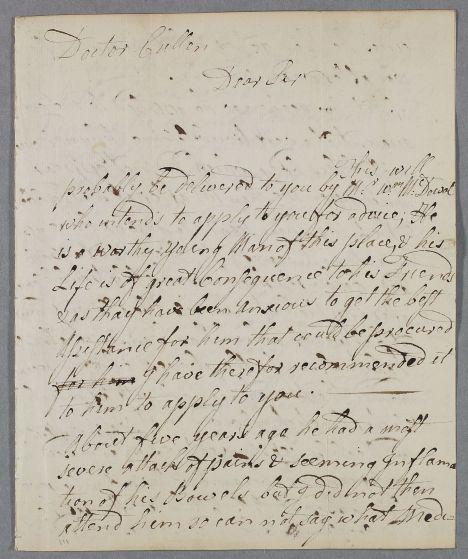 Doctor Cullen
Dear Sir
This will
probably be delivered to you by Mr. Wm. McDowal
who intends to apply to you for advice; He
is a worthy young Man of this place, & his
Life is of great Consequence to his Friends
& as they have been anxious to get the best
Assistance for him that could be procured
for him I have therefor recommended it
to him to apply to you.
About five years ago he had a most
severe attack of pains & seeming Inflama
tion of his Bowels but I did not then
attend him so can not say what Medi-